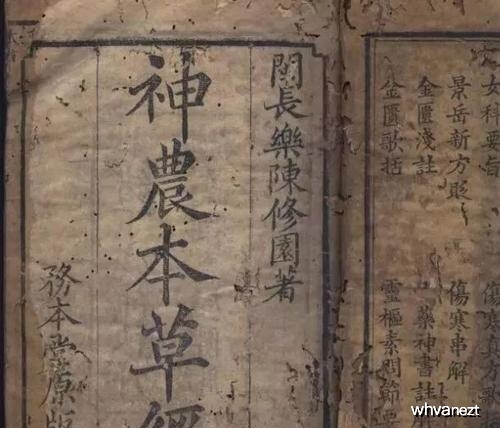 女科要旨 傷寒真方歌
景岳新方砭 傷寒串解
金匱淺註 藥神書註
金匱歌括 靈樞素問節要
閩長樂陳修園著
神農本草經
務本堂原版
whvanezt